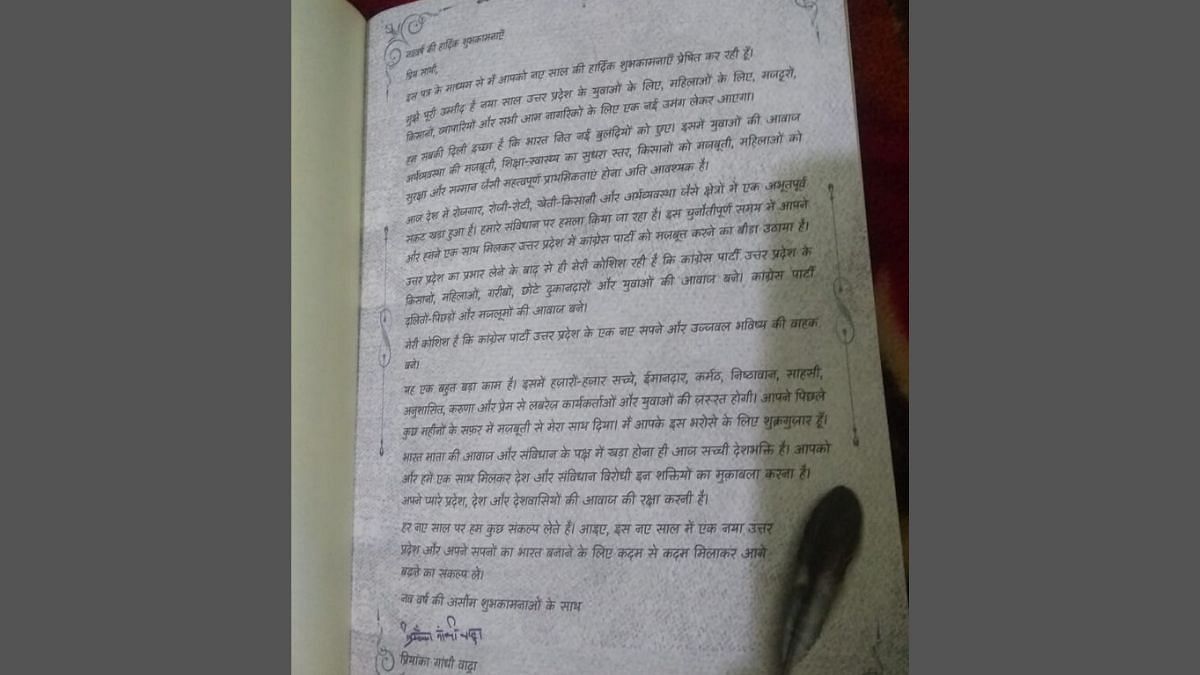 नववर्ष की हार्दिक शुभकामनाएँ
प्रिय साथी,
इस पत्र के माध्यम से मैं आपको नए साल की हार्दिक शुभकामनाएँ प्रेषित कर रही हूँ।
मुझे पूरी उम्मीद है नया साल उत्तर प्रदेश के युवाओं के लिए, महिलाओं के लिए, मजदूरों,
किसानों, व्यापारियों और सभी आम नागरिकों के लिए एक नई उमंग लेकर आएगा।
हम सबकी दिली इच्छा है कि भारत नित नई बुलंदियों को छुए। इसमें युवाओं की आवाज
अर्थव्यवस्था की मजबूती, शिक्षा-स्वास्थ्य का सुधरा स्तर, किसानों को मजबूती, महिलाओं को
सुरक्षा और सम्मान जैसी महत्वपूर्ण प्राथमिकताएं होना अति आवश्यक है।
आज देश में रोजगार, रोजी-रोटी, खेती-किसानी और अर्थव्यवस्था जैसे क्षेत्रों में एक अभूतपूर्व
संकट खड़ा हुआ है। हमारे संविधान पर हमला किया जा रहा है। इस चुनौतीपूर्ण समय में आपने
और हमने एक साथ मिलकर उत्तर प्रदेश में कांग्रेस पार्टी को मजबूत करने का बीड़ा उठाया है।
उत्तर प्रदेश का प्रभार लेने के बाद से ही मेरी कोशिश रही है कि कांग्रेस पार्टी उत्तर प्रदेश के
किसानों, महिलाओं, गरीबों, छोटे दुकानदारों और युवाओं की आवाज बने। कांग्रेस पार्टी
दलितों-पिछड़ों और मजलूमों की आवाज बने।
मेरी कोशिश है कि कांग्रेस पार्टी उत्तर प्रदेश के एक नए सपने और उज्जवल भविष्य की वाहक
बने।
यह एक बहुत बड़ा काम है। इसमें हज़ारों-हज़ार सच्चे, ईमानदार, कर्मठ, निष्ठावान, साहसी,
अनुशासित, करुणा और प्रेम से लबरेज़ कार्यकर्ताओं और युवाओं की ज़रूरत होगी। आपने पिछले
कुछ महीनों के सफ़र में मज़बूती से मेरा साथ दिया। मैं आपके इस भरोसे के लिए शुक्रगुज़ार हूँ।
भारत माता की आवाज और संविधान के पक्ष में खड़ा होना ही आज सच्ची देशभक्ति है। आपको
और हमें एक साथ मिलकर देश और संविधान विरोधी इन शक्तियों का मुक़ाबला करना है।
अपने प्यारे प्रदेश, देश और देशवासियों की आवाज की रक्षा करनी है।
हर नए साल पर हम कुछ संकल्प लेते हैं। आइए, इस नए साल में एक नया उत्तर
प्रदेश और अपने सपनों का भारत बनाने के लिए कदम से कदम मिलाकर आगे
बढ़ने का संकल्प लें।
नव वर्ष की असीम शुभकामनाओं के साथ
प्रियंका गांधी वाड्रा
प्रियांका गांधी वाद्रा